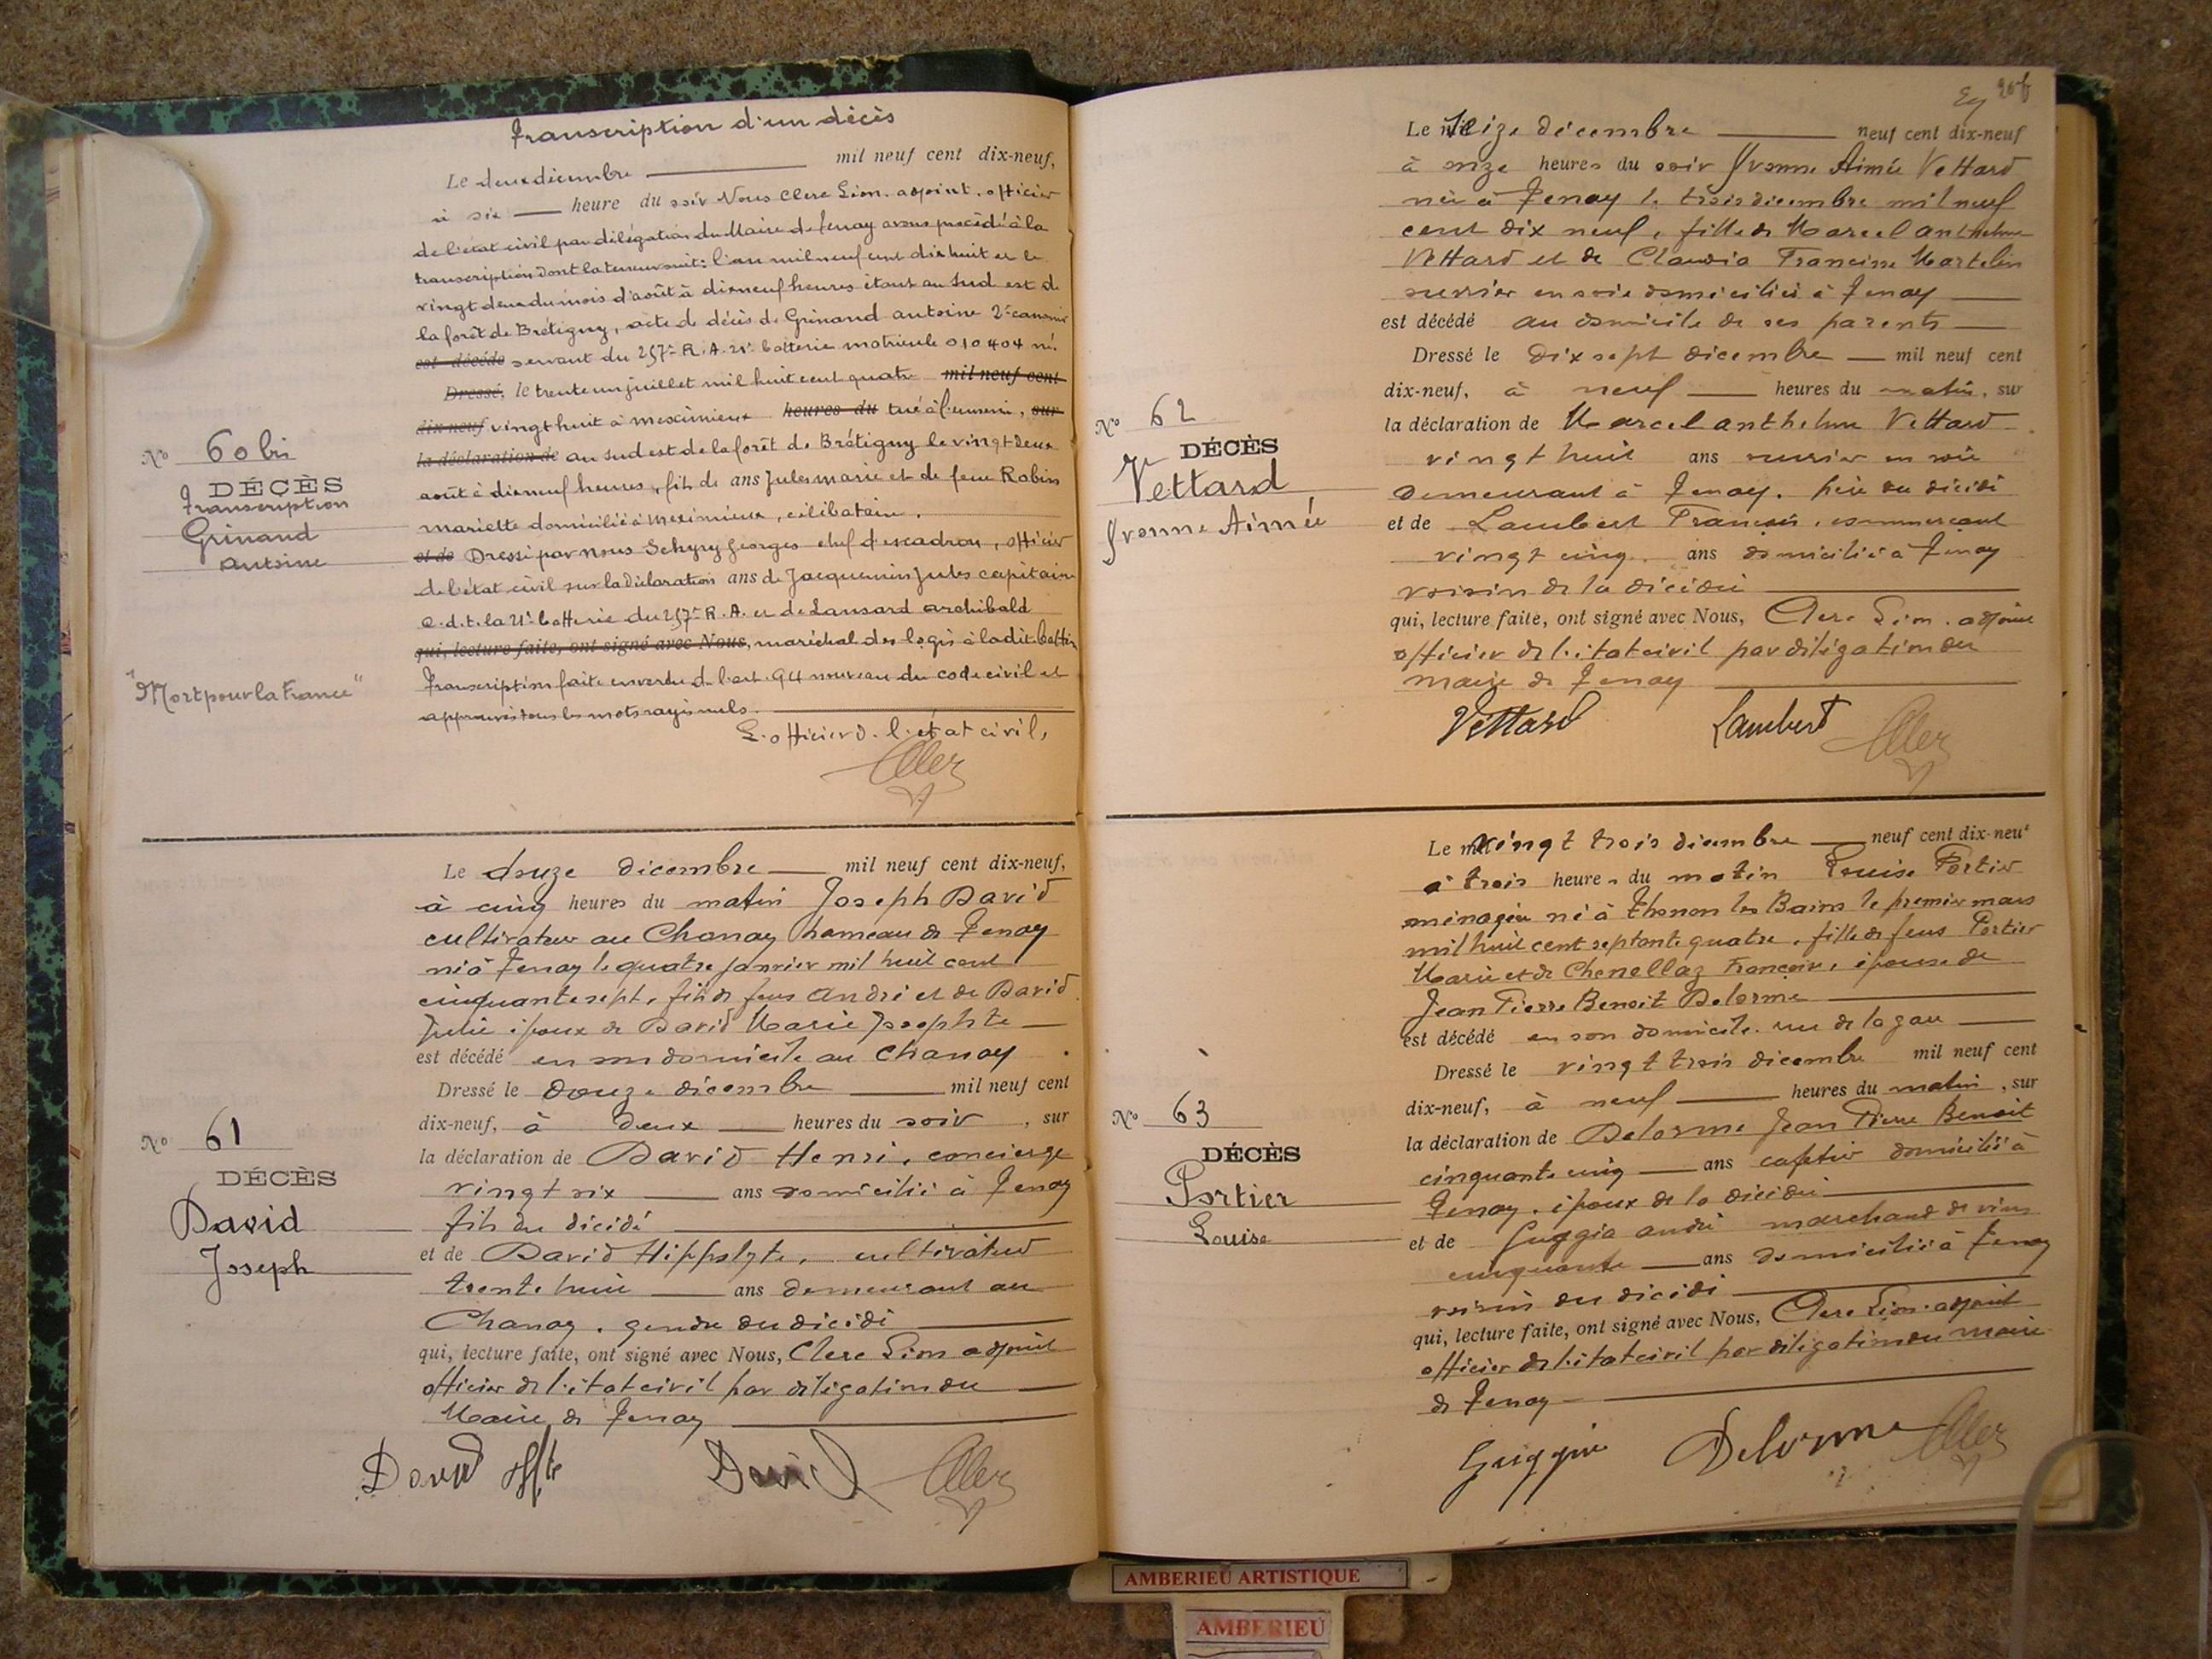 Transcription d'un décès
Le deux décembre mil neuf cent dix-neuf,
à six heure du soir Nous Clerc Léon adjoint, officier
de l'état civil par délégation du Maire de Tenay avons procédé à la
transcription dont la teneur suit: l'an mil neuf cent dix huit et le
vingt deux du mois d'août à dix neuf heures étant au sud est de
la forêt de Brétigny, acte de décès de Grinand antoine 2e canonnier
est décédé servant du 257e R.A. 21e batterie matricule 010404 né
Dressé, le trente un juillet mil huit cent quatre mil neuf cent
dix neuf vingt huit à meximieux heures du tué à l'ennemi, sur
la déclaration de au sud est de la forêt de Brétigny le vingt deux
août à dix neuf heures, fils de ans Jules marie et de feue Robin
mariette domicilié à Meximieux, célibataire.
et de Dressé par nous Schyry Georges chef d'escadron, officier
de l'état civil sur la déclaration ans de Jacquemin Jules capitaine
c.d.t. la 21e batterie du 257e R.A. et de Lansard archibald
qui, lecture faite, ont signé avec Nous, maréchal des logis à la dite battie
Transcription faite en vertu de l'art. 94 nouveau du code civil et
approuvés tous les mots rayés nuls.
L'officier de l'état civil,
No 60 bis
DÉCÈS
Transcription
Grinand
Antoine
"Mort pour la France"
Le douze décembre mil neuf cent dix-neuf,
à cinq heures du matin Joseph David
cultivateur au Chanay hameau de Tenay
né à Tenay le quatre janvier mil huit cent
cinquante sept, fils de feus André et de David
Julie époux de David Marie Josephte
est décédé en son domicile au Chanay.
Dressé le douze décembre mil neuf cent
dix-neuf, à deux heures du soir, sur
la déclaration de David Henri, concierge
vingt six ans domicilié à Tenay
fils du décédé
et de David Hippolyte, cultivateur
trente huit ans demeurant au
Chanay, gendre du décédé
qui, lecture faite, ont signé avec Nous, Clerc Léon adjoint
officier de l'état civil par délégation du
Maire de Tenay
David Hte David
No 61
DÉCÈS
David
Joseph
Le mil seize décembre neuf cent dix-neuf
à onze heures du soir Yvonne Aimée Vettard
née à Tenay le trois décembre mil neuf
cent dix neuf, fille de Marcel Anthelme
Vettard et de Claudia Francine Martelin
ouvrier en soie domiciliés à Tenay
est décédé au domicile de ses parents
Dressé le dix sept décembre mil neuf cent
dix-neuf, à neuf heures du matin, sur
la déclaration de Marcel anthelme Vettard
vingt huit ans ouvrier en soie
demeurant à Tenay, père du décédé
et de Lambert François, commerçant
vingt cinq ans domicilié à Tenay
voisin de la décédée
qui, lecture faite, ont signé avec Nous, Clerc Léon, adjoint
officier de l'état civil par délégation du
maire de Tenay
Vettard Lambert
No 62
DÉCÈS
Vettard
Yvonne Aimée
Le mil vingt trois décembre neuf cent dix-neuf
à trois heures du matin Louise Portier
ménagère né à Thonon les Bains le premier mars
mil huit cent septante quatre, fille de feus Portier
Marie et de Chenellaz Françoise, épouse de
Jean Pierre Benoit Delorme
est décédé en son domicile rue de la gare
Dressé le vingt trois décembre mil neuf cent
dix-neuf, à neuf heures du matin, sur
la déclaration de Delorme Jean Pierre Benoit
cinquante cinq ans cafetier domicilié à
Tenay, époux de la décédée
et de Guggia andré marchand de vins
cinquante ans domicilié à Tenay
voisin du décédé
qui, lecture faite, ont signé avec Nous, Clerc Léon adjoint
officier de l'état civil par délégation du maire
de Tenay
Delorme
No 63
DÉCÈS
Portier
Louise
AMBERIEU ARTISTIQUE
AMBERIEU